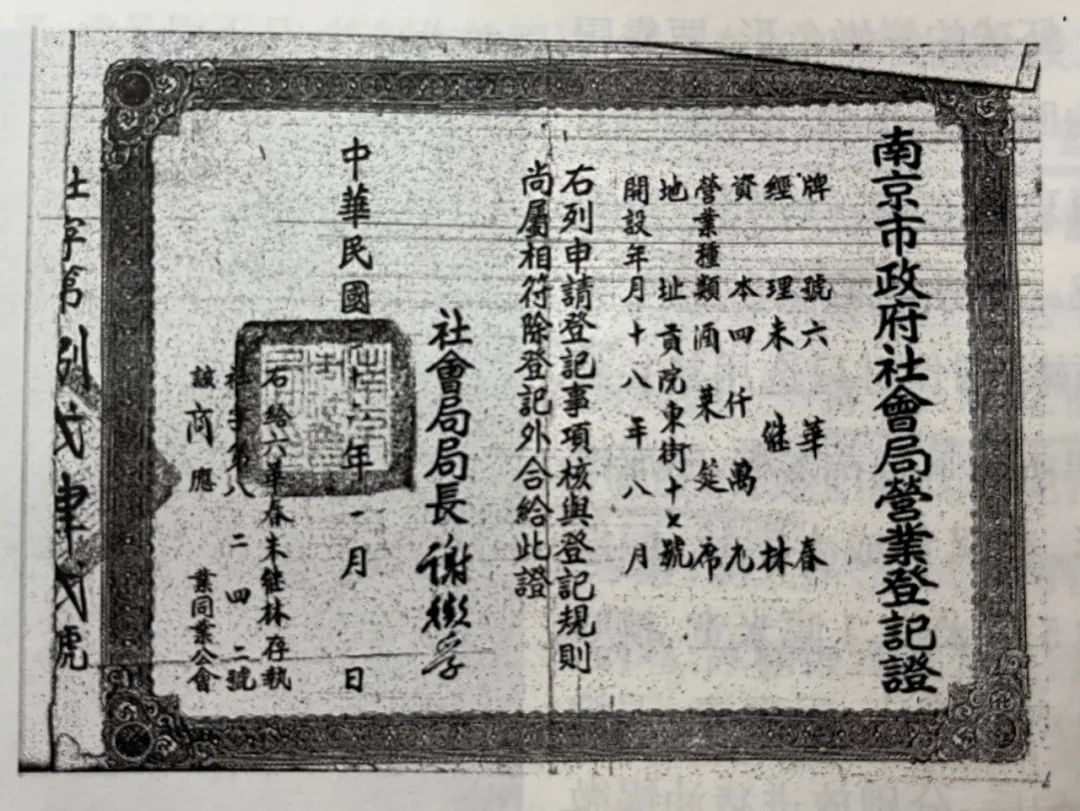 南京市政府社會局營業登記證
牌號六華春
經理朱继林
資本四仟萬元
營業種類酒菜筵席
地址貢院東街十七號
開設年月十八年八月
右列申請登記事項核與登記規則
尚屬相符除登記外合給此證
社會局局長謝徵孚
中華民國三十六年一月 日
右給六華春朱继林存執
社字第八二四二號
該商應 業同業公會
社字第捌弍肆弍號